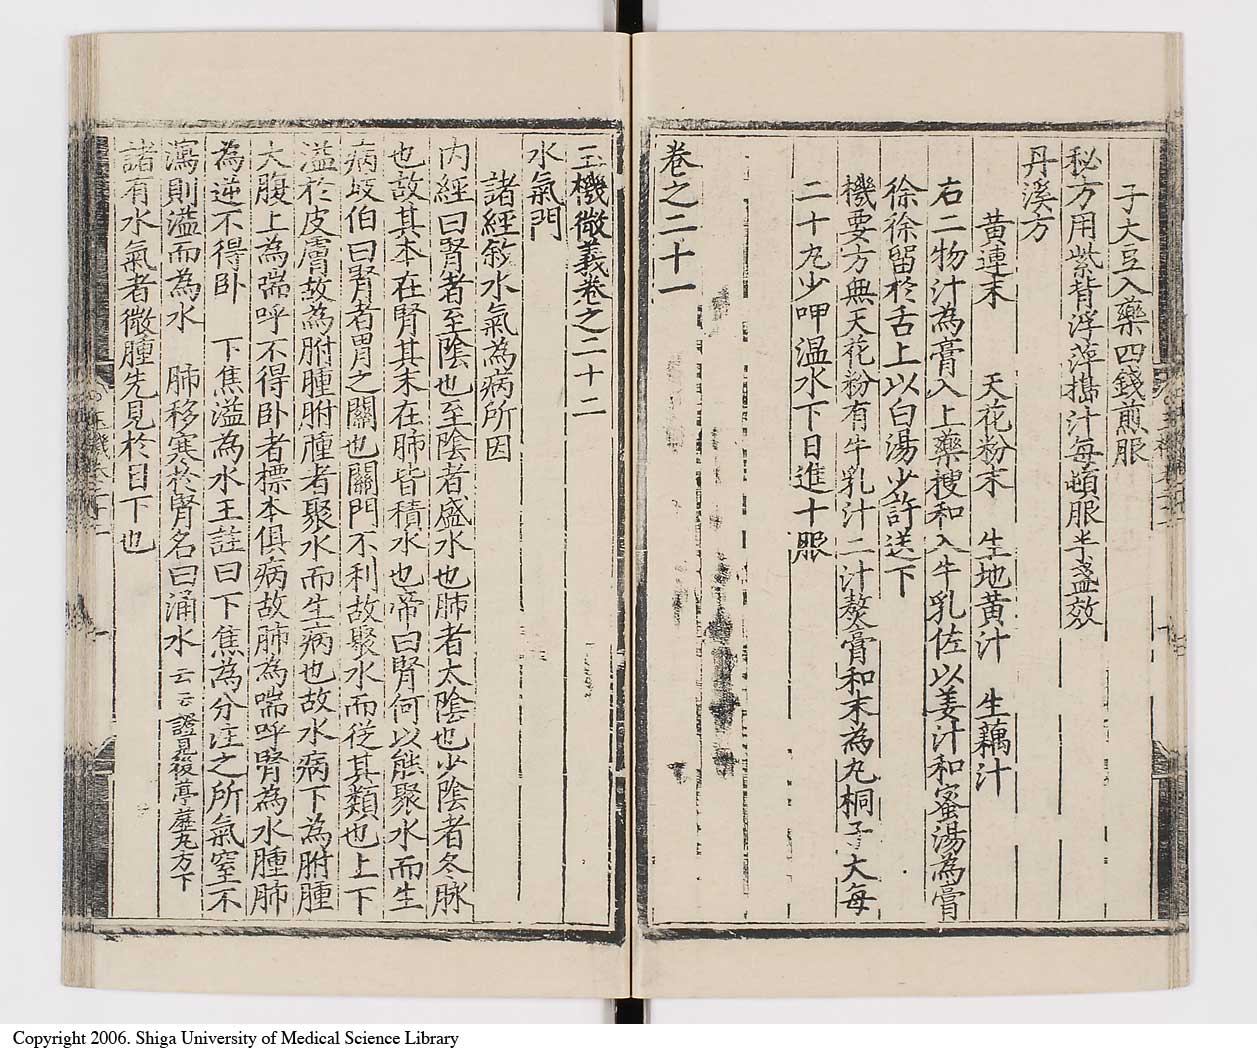 子大豆入藥四錢煎服
秘方用紫背浮萍搗汁每頓服半盞效
丹溪方
黃連末 天花粉末 生地黃汁 生藕汁
右二物汁為膏入上藥搜和入牛乳佐以姜汁和蜜湯為膏
徐徐留於舌上以白湯少許送下
機要方無天花粉有牛乳汁二汁熬膏和末為丸桐子大每
二十九少呷溫水下日進十服
卷之二十一
玉機微義卷之二十二
水氣門
諸經敘水氣為病所因
內經曰腎者至陰也至陰者盛水也肺者太陰也少陰者冬脉
也故其本在腎其末在肺皆積水也帝曰腎何以能聚水而生
病歧伯曰腎者胃之關也關門不利故聚水而從其類也上下
溢於皮膚故為胕腫胕腫者聚水而生病也故水病下為胕腫
大腹上為喘呼不得臥者標本俱病故肺為喘呼腎為水腫肺
為逆不得臥 下焦溢為水王註曰下焦為分注之所氣窒不
瀉則溢而為水 肺移寒於腎名曰涌水云云證見後葶藶丸方下
諸有水氣者微腫先見於目下也
Copyright 2006. Shiga University of Medical Science Library